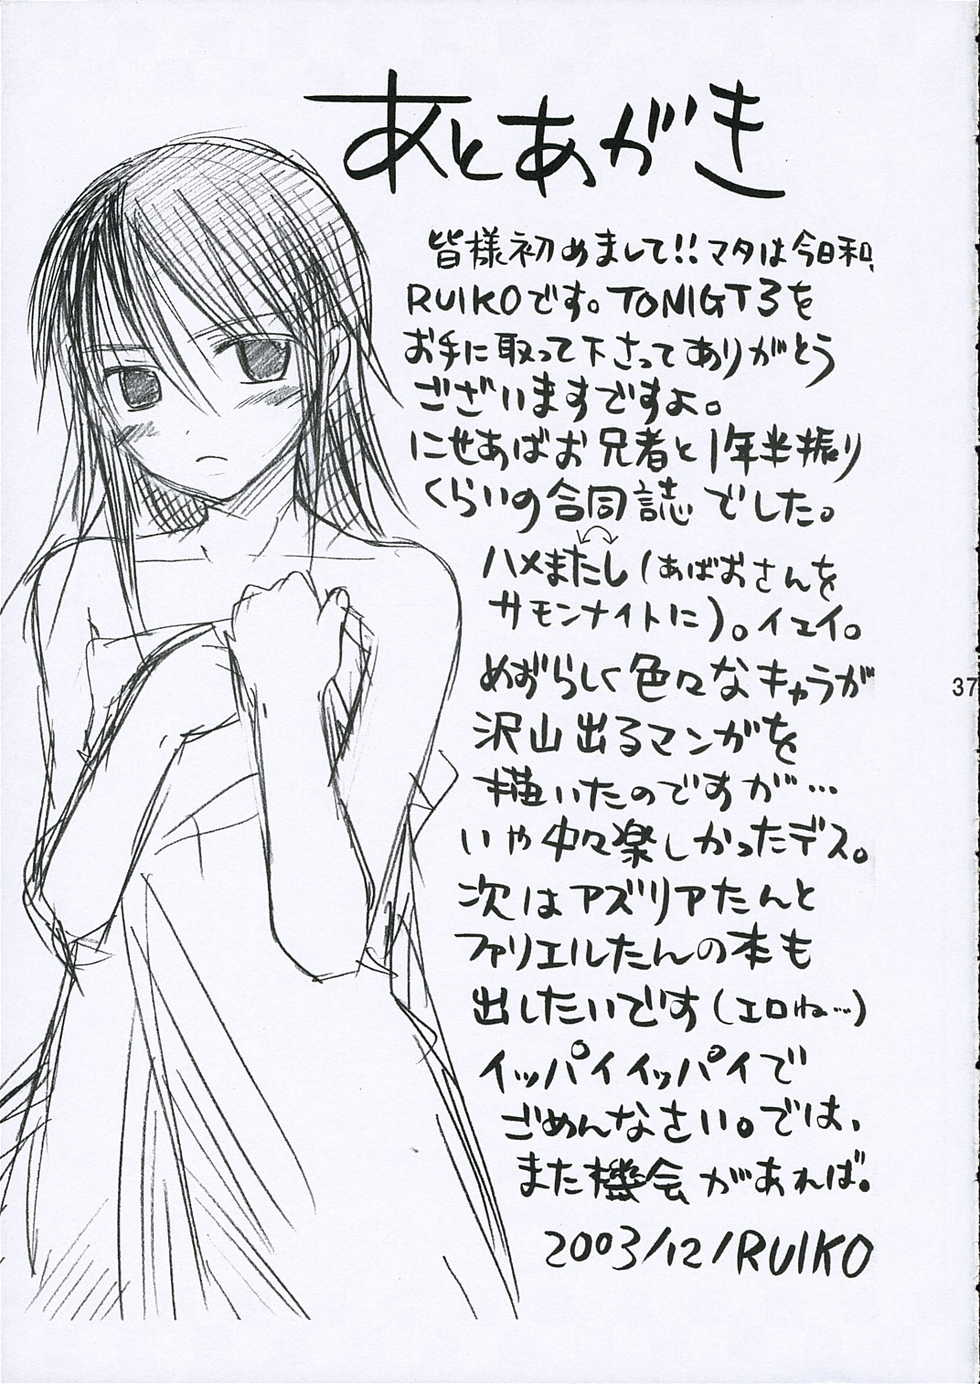 あとあがき
皆様初めまして!!マタは今日和、
RUIKOです。TONIGT3を
お手に取って下さってありがとう
ございますですよ。
にせあばお兄者と1年半振り
くらいの合同誌でした。
ハメまたし(あばおさんを
サモンナイトに)。イエイ。
めずらしく色々なキャラが
沢山出るマンガを
描いたのですが…
いや中々楽しかったデス。
次はアズリアたんと
ファリエルたんの本も
出したいです(エロね…)
イッパイイッパイで
ごめんなさい。では、
また機会があれば。
2003/12/RUIKO
37